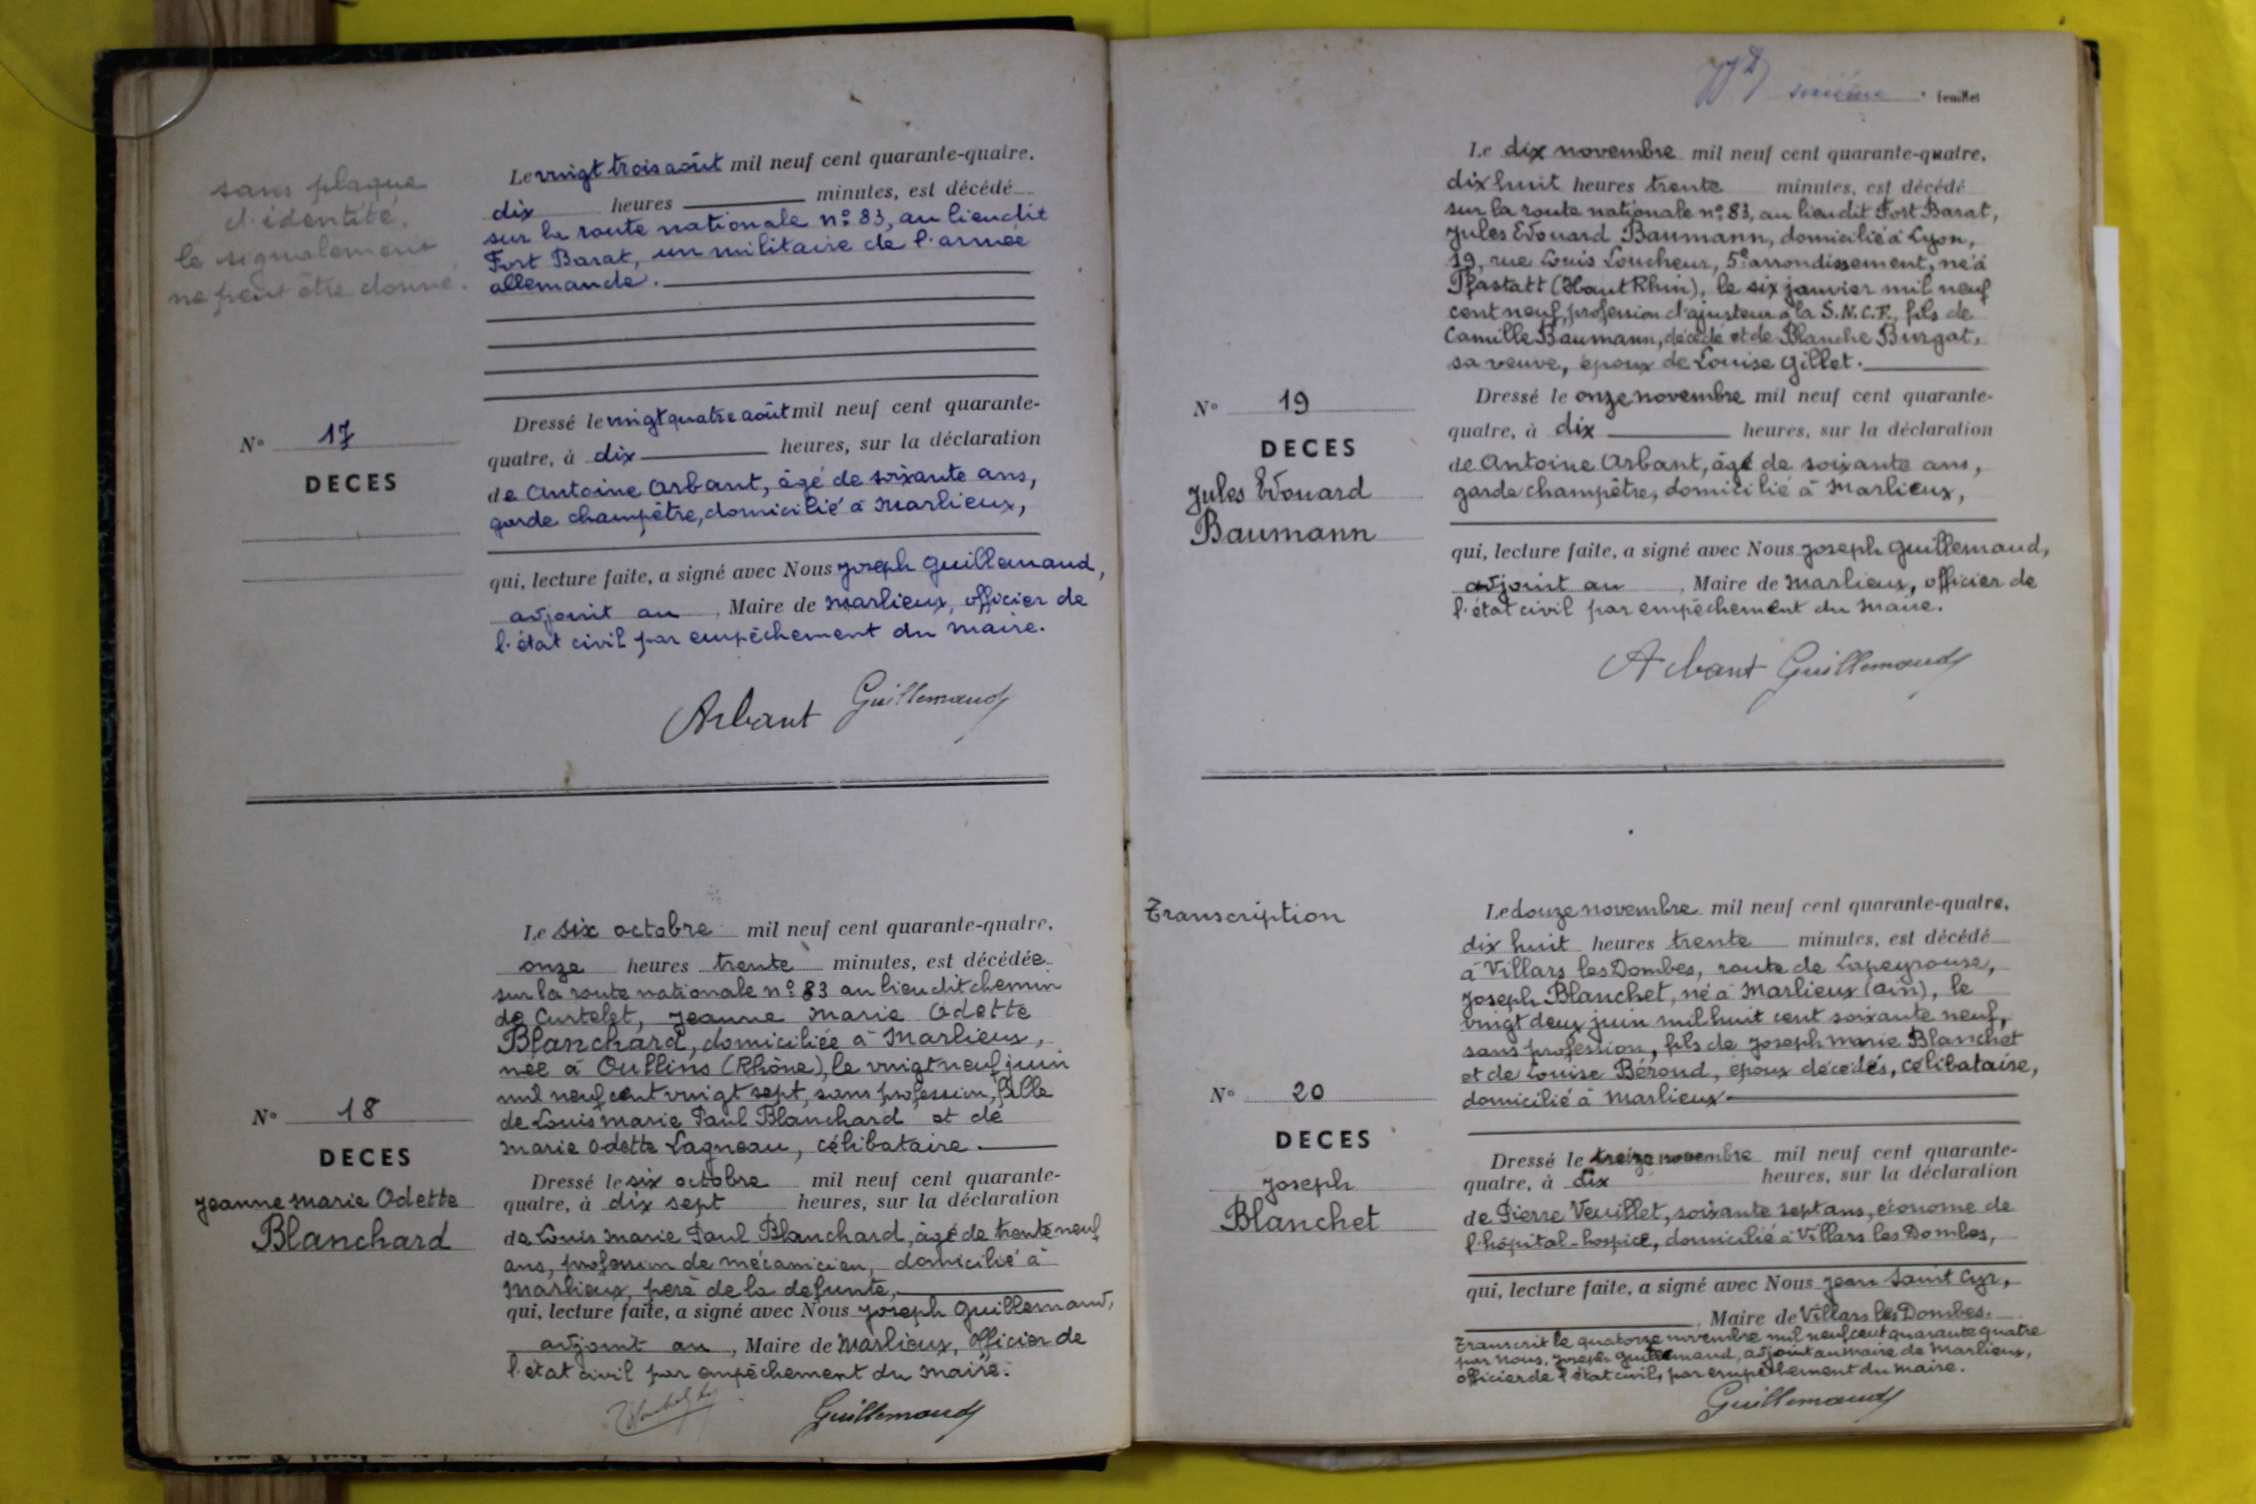 sans plaque
d'identité.
le signalement
ne peut être donné.
Le vingt trois août mil neuf cent quarante-quatre,
dix heures minutes, est décédé
sur la route nationale n° 83, au lieudit
Fort Barat, un militaire de l'armée
allemande.
N° 17
DECES
Dressé le vingt quatre août mil neuf cent quarante-
quatre, à dix heures, sur la déclaration
de Antoine Arbant, âgé de soixante ans,
garde champêtre, domicilié à Marlieux,
qui, lecture faite, a signé avec Nous Joseph Guillemaud,
adjoint au , Maire de Marlieux, officier de
l'état civil par empêchement du Maire.
Arbant Guillemaud
Le six octobre mil neuf cent quarante-quatre,
onze heures trente minutes, est décédée
sur la route nationale n° 83 au lieu dit chemin
de Curtelet, Jeanne Marie Odette
Blanchard, domiciliée à Marlieux,
née à Oullins (Rhône), le vingt neuf juin
mil neuf cent vingt sept, sans profession, fille
de Louis Marie Paul Blanchard et de
Marie Odette Lagneau, célibataire.
N° 18
DECES
Jeanne Marie Odette
Blanchard
Dressé le six octobre mil neuf cent quarante-
quatre, à dix sept heures, sur la déclaration
de Louis Marie Paul Blanchard, âgé de trente neuf
ans, profession de mécanicien, domicilié à
Marlieux, père de la défunte,
qui, lecture faite, a signé avec Nous Joseph Guillemaud,
adjoint au , Maire de Marlieux, officier de
l'état civil par empêchement du Maire.
Guillemaud
feuillet
Le dix novembre mil neuf cent quarante-quatre,
dix huit heures trente minutes, est décédé
sur la route nationale n° 83, au lieu dit Fort Barat,
Jules Edouard Baumann, domicilié à Lyon,
19, rue Louis Loucheur, 5e arrondissement, né à
Pfastatt (Haut Rhin), le six janvier mil neuf
cent neuf, profession d'ajusteur à la S.N.C.F., fils de
Camille Baumann, décédé et de Blanche Burgat,
sa veuve, époux de Louise Gillet.
N° 19
DECES
Jules Edouard
Baumann
Dressé le onze novembre mil neuf cent quarante-
quatre, à dix heures, sur la déclaration
de Antoine Arbant, âgé de soixante ans,
garde champêtre, domicilié à Marlieux,
qui, lecture faite, a signé avec Nous Joseph Guillemaud,
adjoint au , Maire de Marlieux, officier de
l'état civil par empêchement du Maire.
Arbant Guillemaud
Transcription
Le douze novembre mil neuf cent quarante-quatre,
dix huit heures trente minutes, est décédé
à Villars les Dombes, route de Lapeyrouse,
Joseph Blanchet, né à Marlieux (Ain), le
vingt deux juin mil huit cent soixante neuf,
sans profession, fils de Joseph Marie Blanchet
et de Louise Béroud, époux décédés, célibataire,
domicilié à Marlieux.
N° 20
DECES
Joseph
Blanchet
Dressé le treize novembre mil neuf cent quarante-
quatre, à dix heures, sur la déclaration
de Pierre Veuillet, soixante sept ans, économe de
l'hôpital-hospice, domicilié à Villars les Dombes,
qui, lecture faite, a signé avec Nous Jean Saint Cyr,
, Maire de Villars les Dombes.
Transcrit le quatorze novembre mil neuf cent quarante quatre
par Nous, Joseph Guillemaud, adjoint au maire de Marlieux,
officier de l'état civil, par empêchement du Maire.
Guillemaud